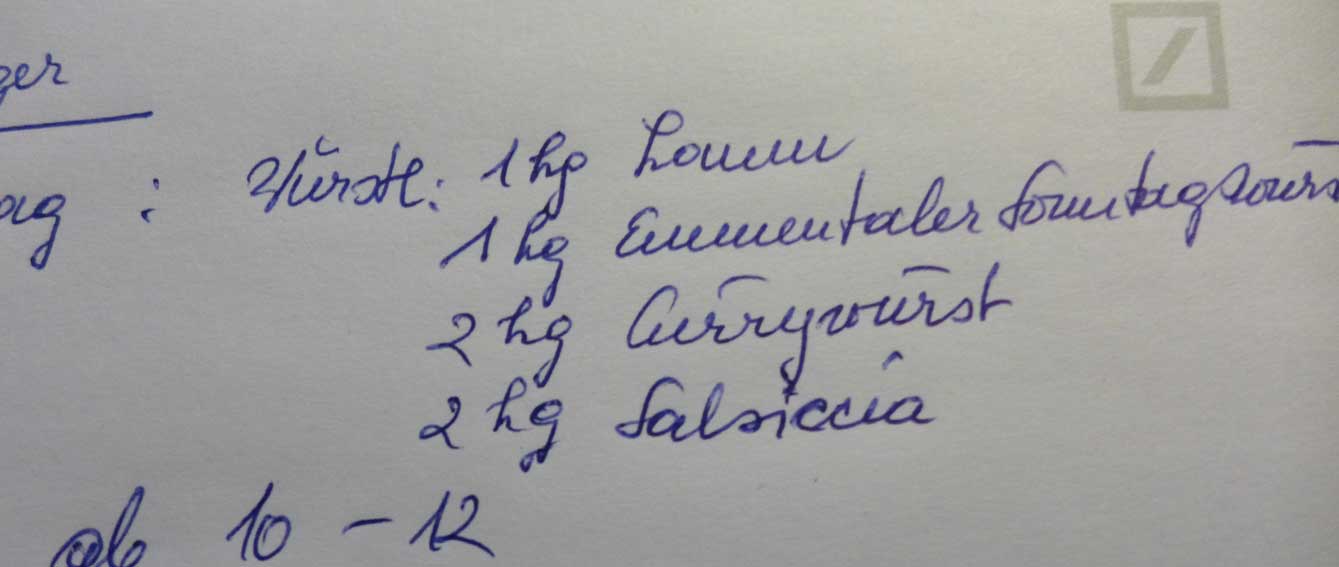 ger
ag : Würstl: 1 kg Lamm
1 kg Emmentaler Sonntagswurs
2 kg Currywurst
2 kg Salsiccia
ab 10 – 12